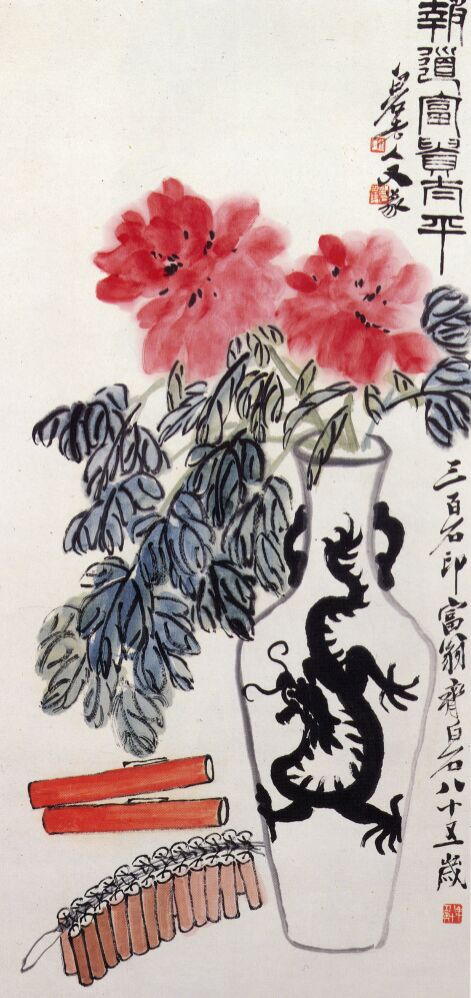 報道富貴太平
白石老人又篆
三百石印富翁齊白石八十五歲